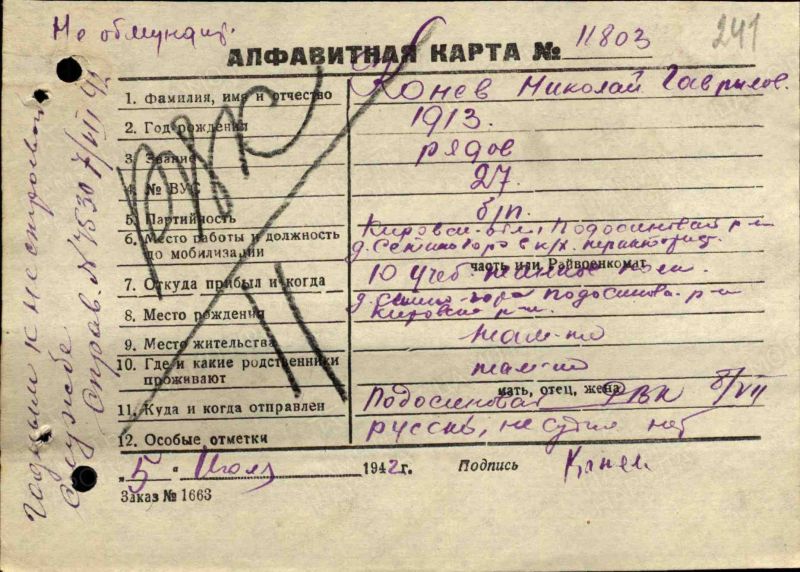 Не обмундир.
241
АЛФАВИТНАЯ КАРТА № 11803
1. Фамилия, имя и отчество Конев Николай Гаврилов.
2. Год рождения 1913.
3. Звание рядов
4. № ВУС 27.
5. Партийность б/п.
6. Место работы и должность до мобилизации Кировск. обл. Подосиновский р-н
тракторист
часть или Райвоенкомат
7. Откуда прибыл и когда 10 учеб. танков.
8. Место рождения Подосинов. р-н
Кировск
9. Место жительства там-то
10. Где и какие родственники проживают там-то
мать, отец, жена
11. Куда и когда отправлен Подосиновский РВК 8/VII
12. Особые отметки русск, не судим нет
„5“ Июля 1942 г. Подпись Конев
Заказ № 1663
Годный к нестроевой
службе
Справ. № 7530 7/VII 42
РВК
11